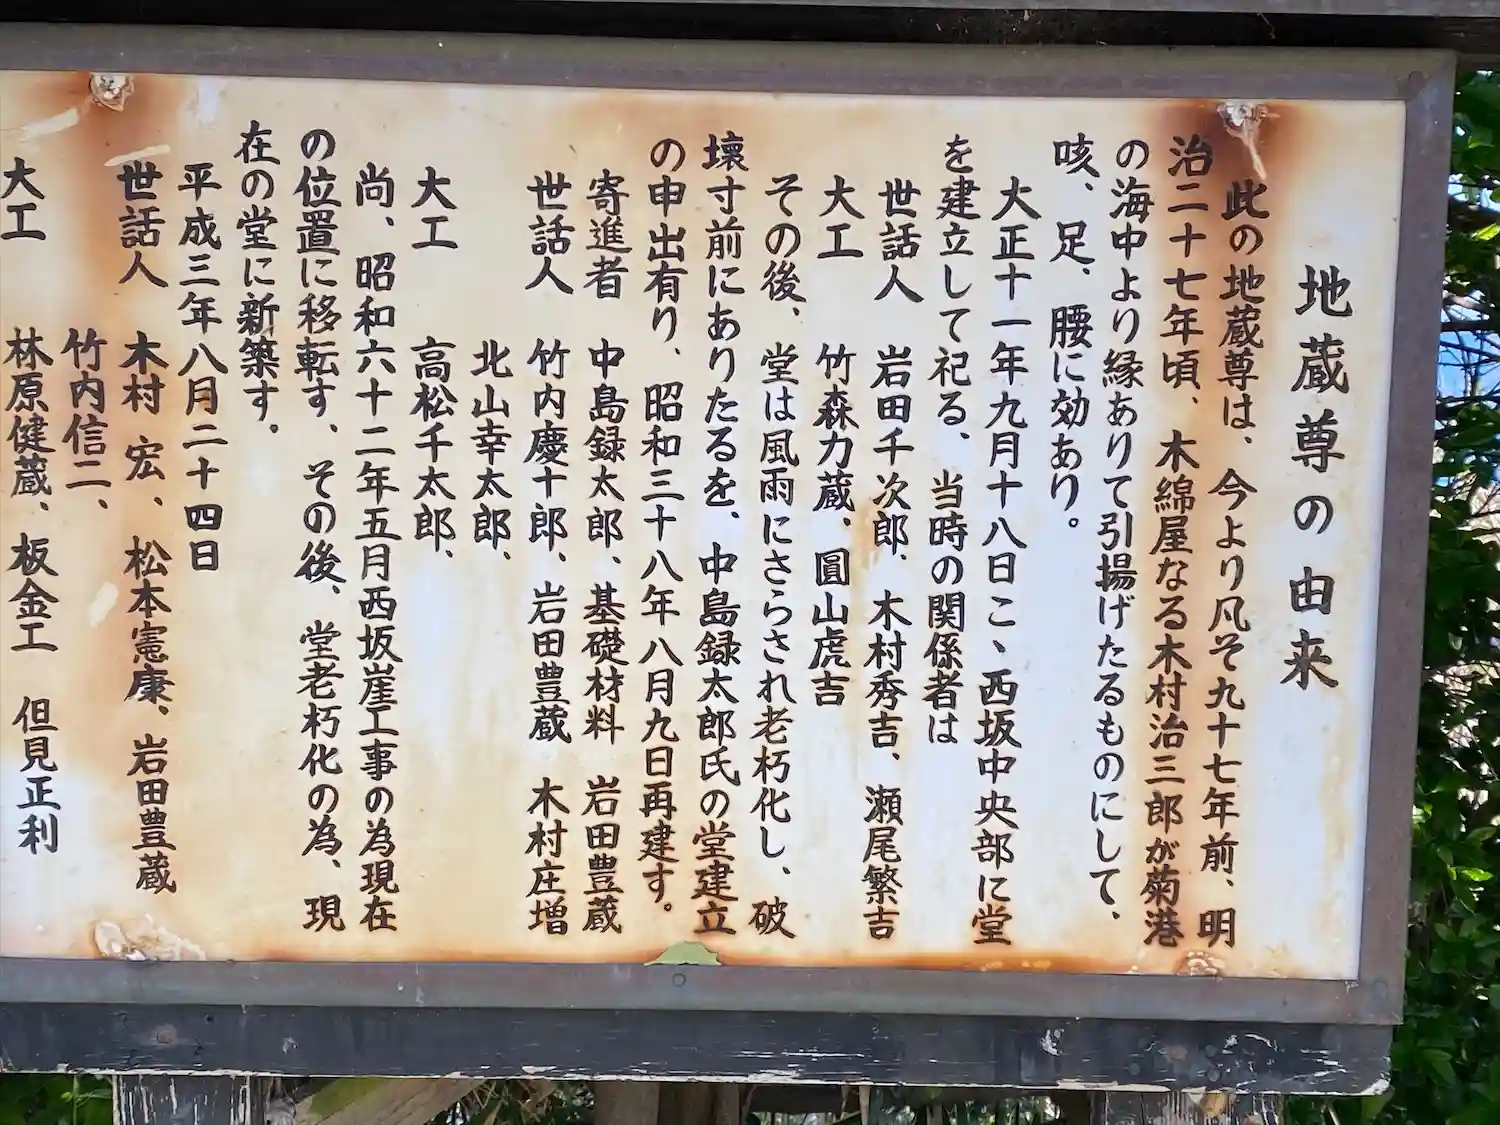 地蔵尊の由来
此の地蔵尊は、今より凡そ九十七年前、明
治二十七年頃、木綿屋なる木村治三郎が菊港
の海中より縁ありて引揚げたるものにして、
咳、足、腰に効あり。
大正十一年九月十八日こゝ西坂中央部に堂
を建立して祀る、当時の関係者は
世話人 岩田千次郎、木村秀吉、瀬尾繁吉
大工 竹森力蔵、圓山虎吉
その後、堂は風雨にさらされ老朽化し、破
壊寸前にありたるを、中島録太郎氏の堂建立
の申出有り、昭和三十八年八月九日再建す。
寄進者 中島録太郎、基礎材料 岩田豊蔵
世話人 竹内慶十郎、岩田豊蔵 木村庄増
北山幸太郎、
大工 高松千太郎、
尚、昭和六十二年五月西坂崖工事の為現在
の位置に移転す、その後、堂老朽化の為、現
在の堂に新築す。
平成三年八月二十四日
世話人 木村 宏、松本憲康、岩田豊蔵
竹内信二、
大工 林原健蔵、板金工 但見正利